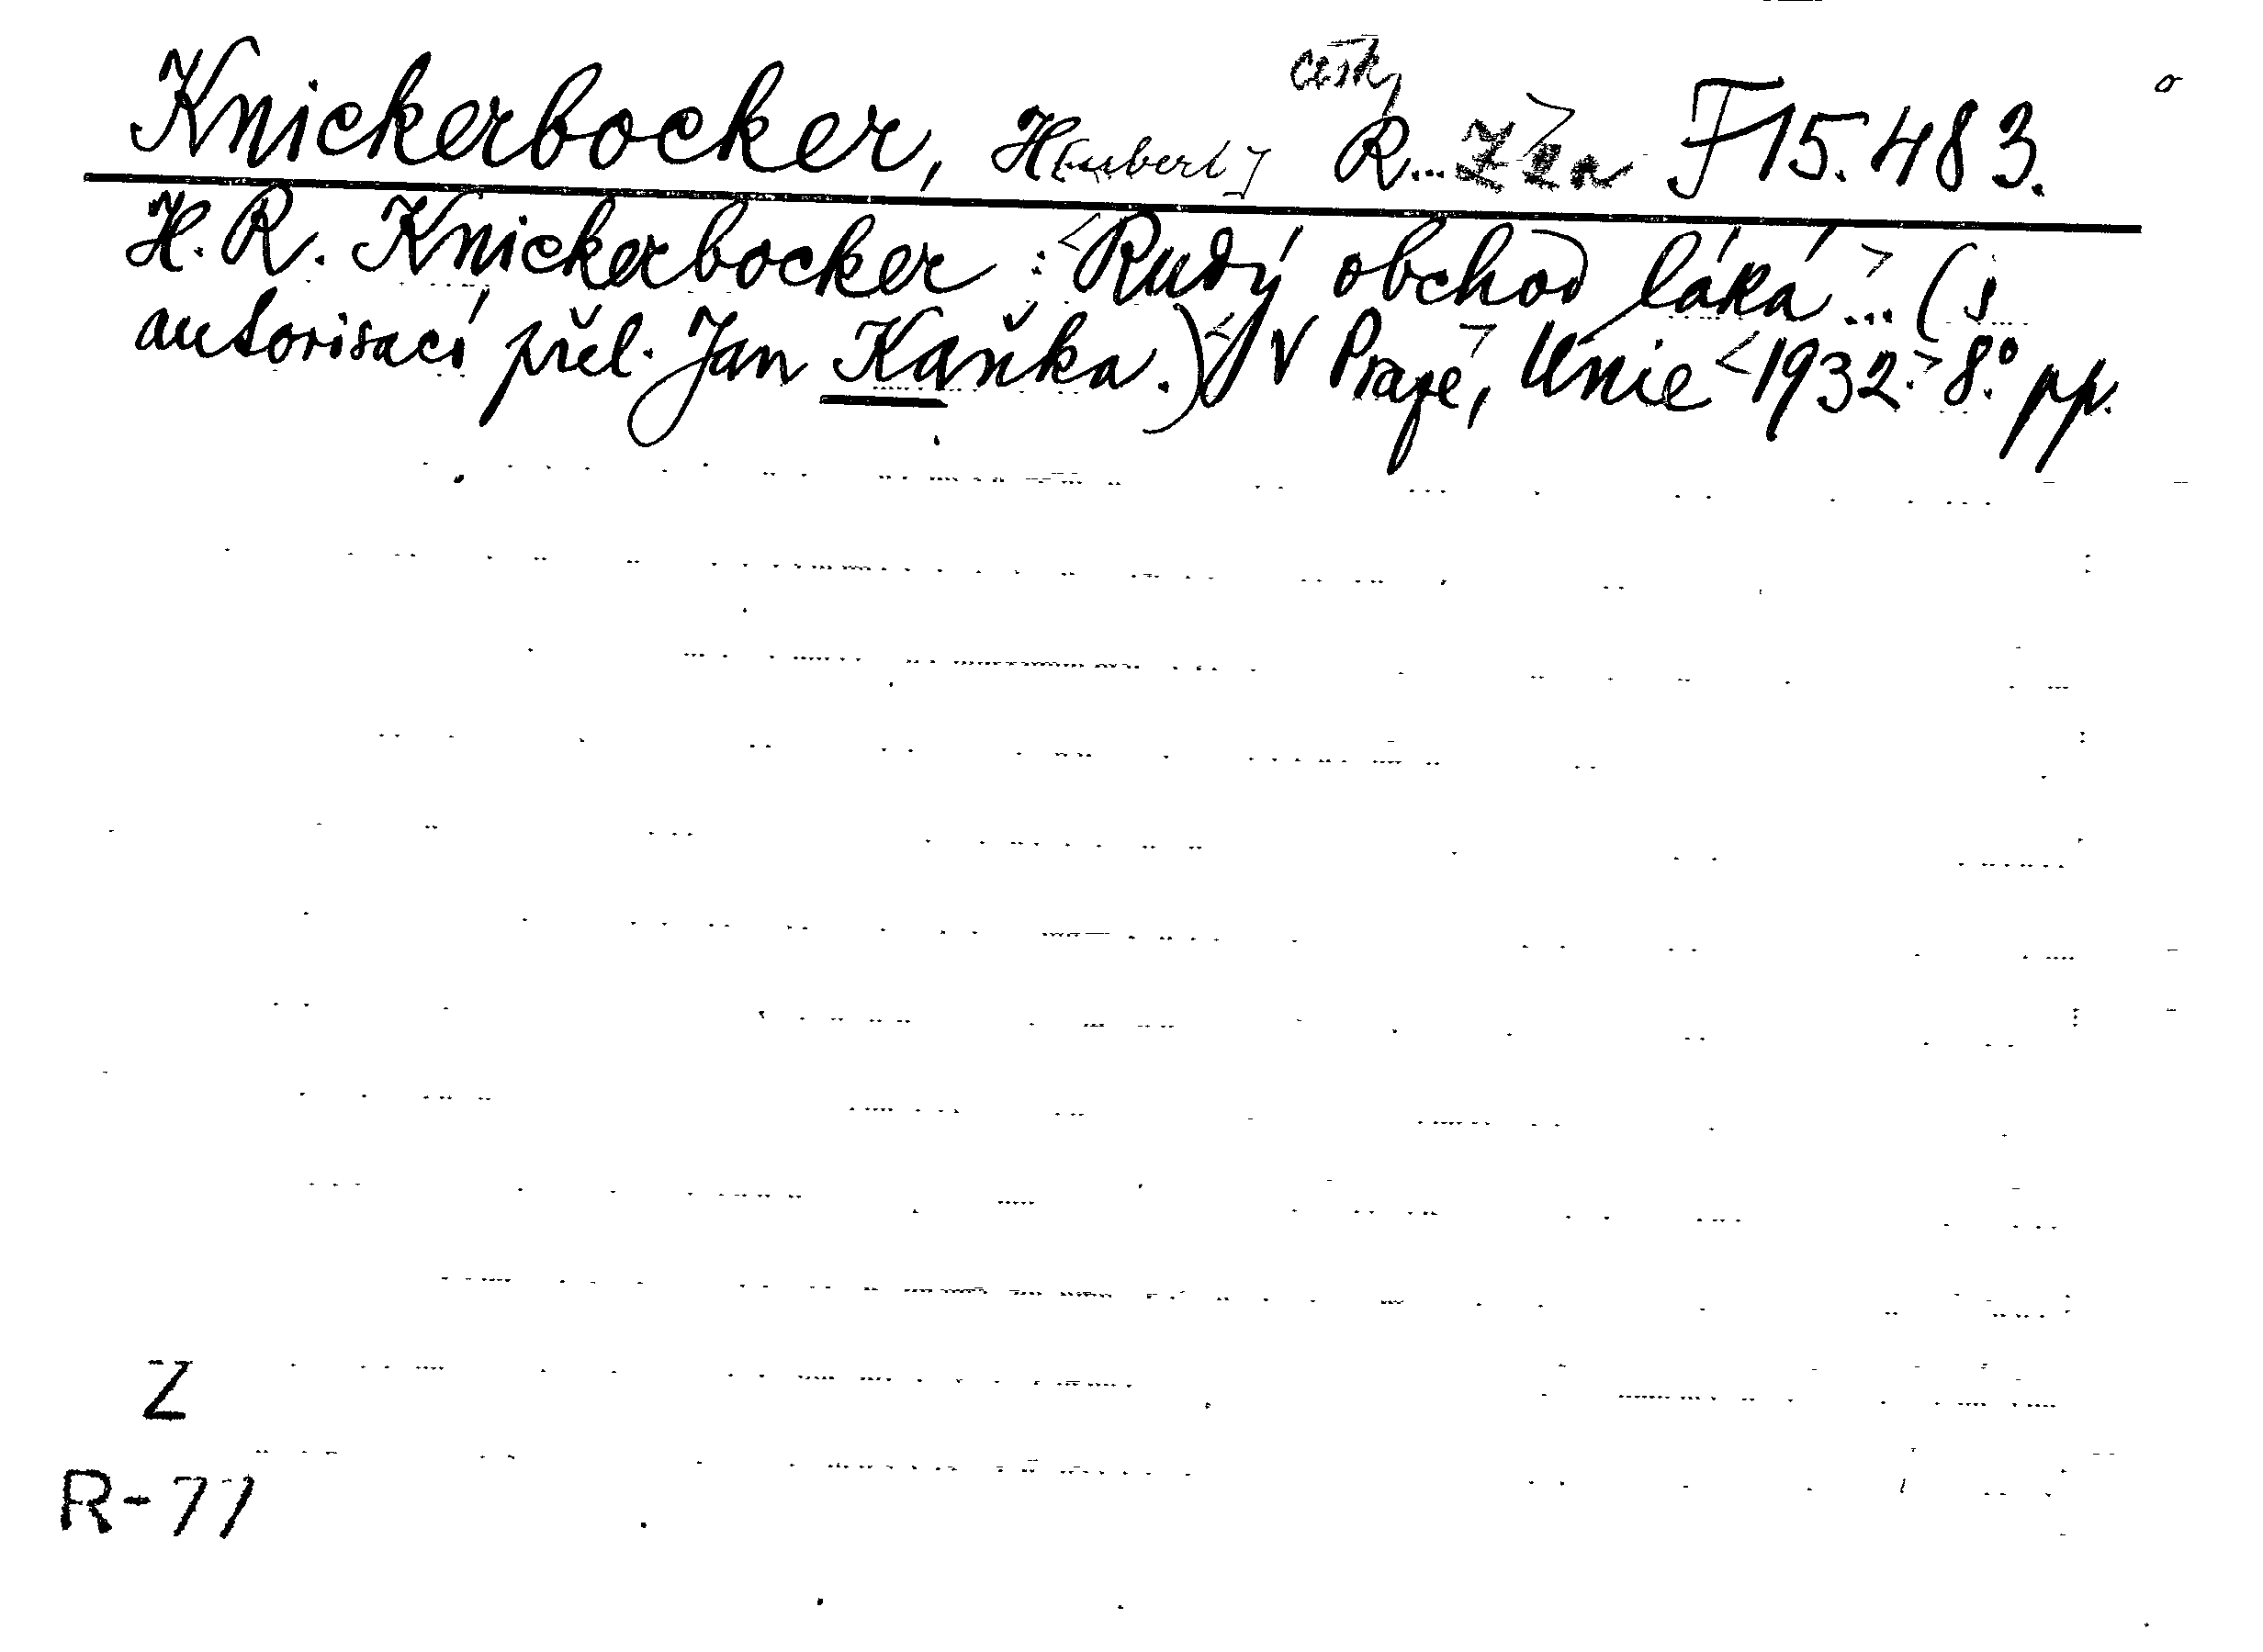 česky
Knickerbocker, H[ubert] R... F 15.483.
H. R. Knickerbocker : <Rudý obchod láká...> (S
autorisací přel. Jan Kaňka.) <V Praze>, Unie <1932.> 8.° pp.
Z
R-77